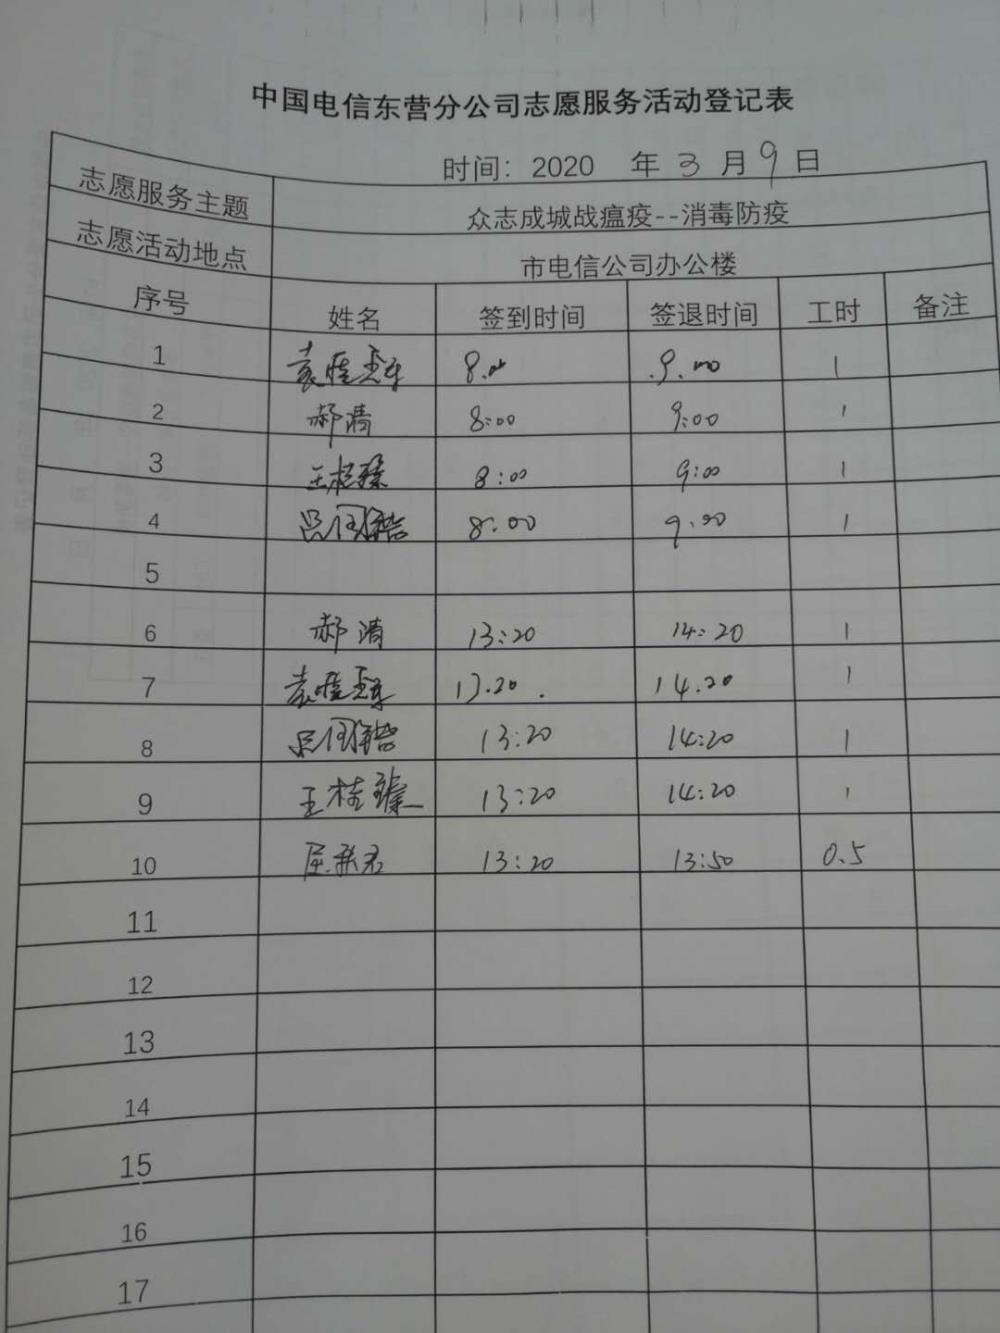 中国电信东营分公司志愿服务活动登记表
时间：2020 年 3 月 9 日
志愿服务主题 众志成城战瘟疫--消毒防疫
志愿活动地点 市电信公司办公楼
序号 姓名 签到时间 签退时间 工时 备注
1 袁 8.00 9.00 1
2 郝清 8:00 9:00 1
3 王桂臻 8:00 9:00 1
4 吕 8:00 9:00 1
5
6 郝清 13:20 14:20 1
7 袁 13.20 14.20 1
8 吕 13:20 14:20 1
9 王桂臻 13:20 14:20 1
10 屈 13:20 13:50 0.5
11
12
13
14
15
16
17